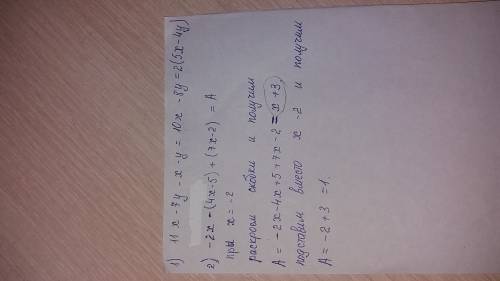 1) 11x - 7y - x - y = 10x - 8y = 2(5x - 4y)
2) -2x - (4x - 5) + (7x - 2) = A
при x = -2
раскроем скобки и получим
A = -2x - 4x + 5 + 7x - 2 = x + 3,
подставим вместо x -2 и получим
A = -2 + 3 = 1.